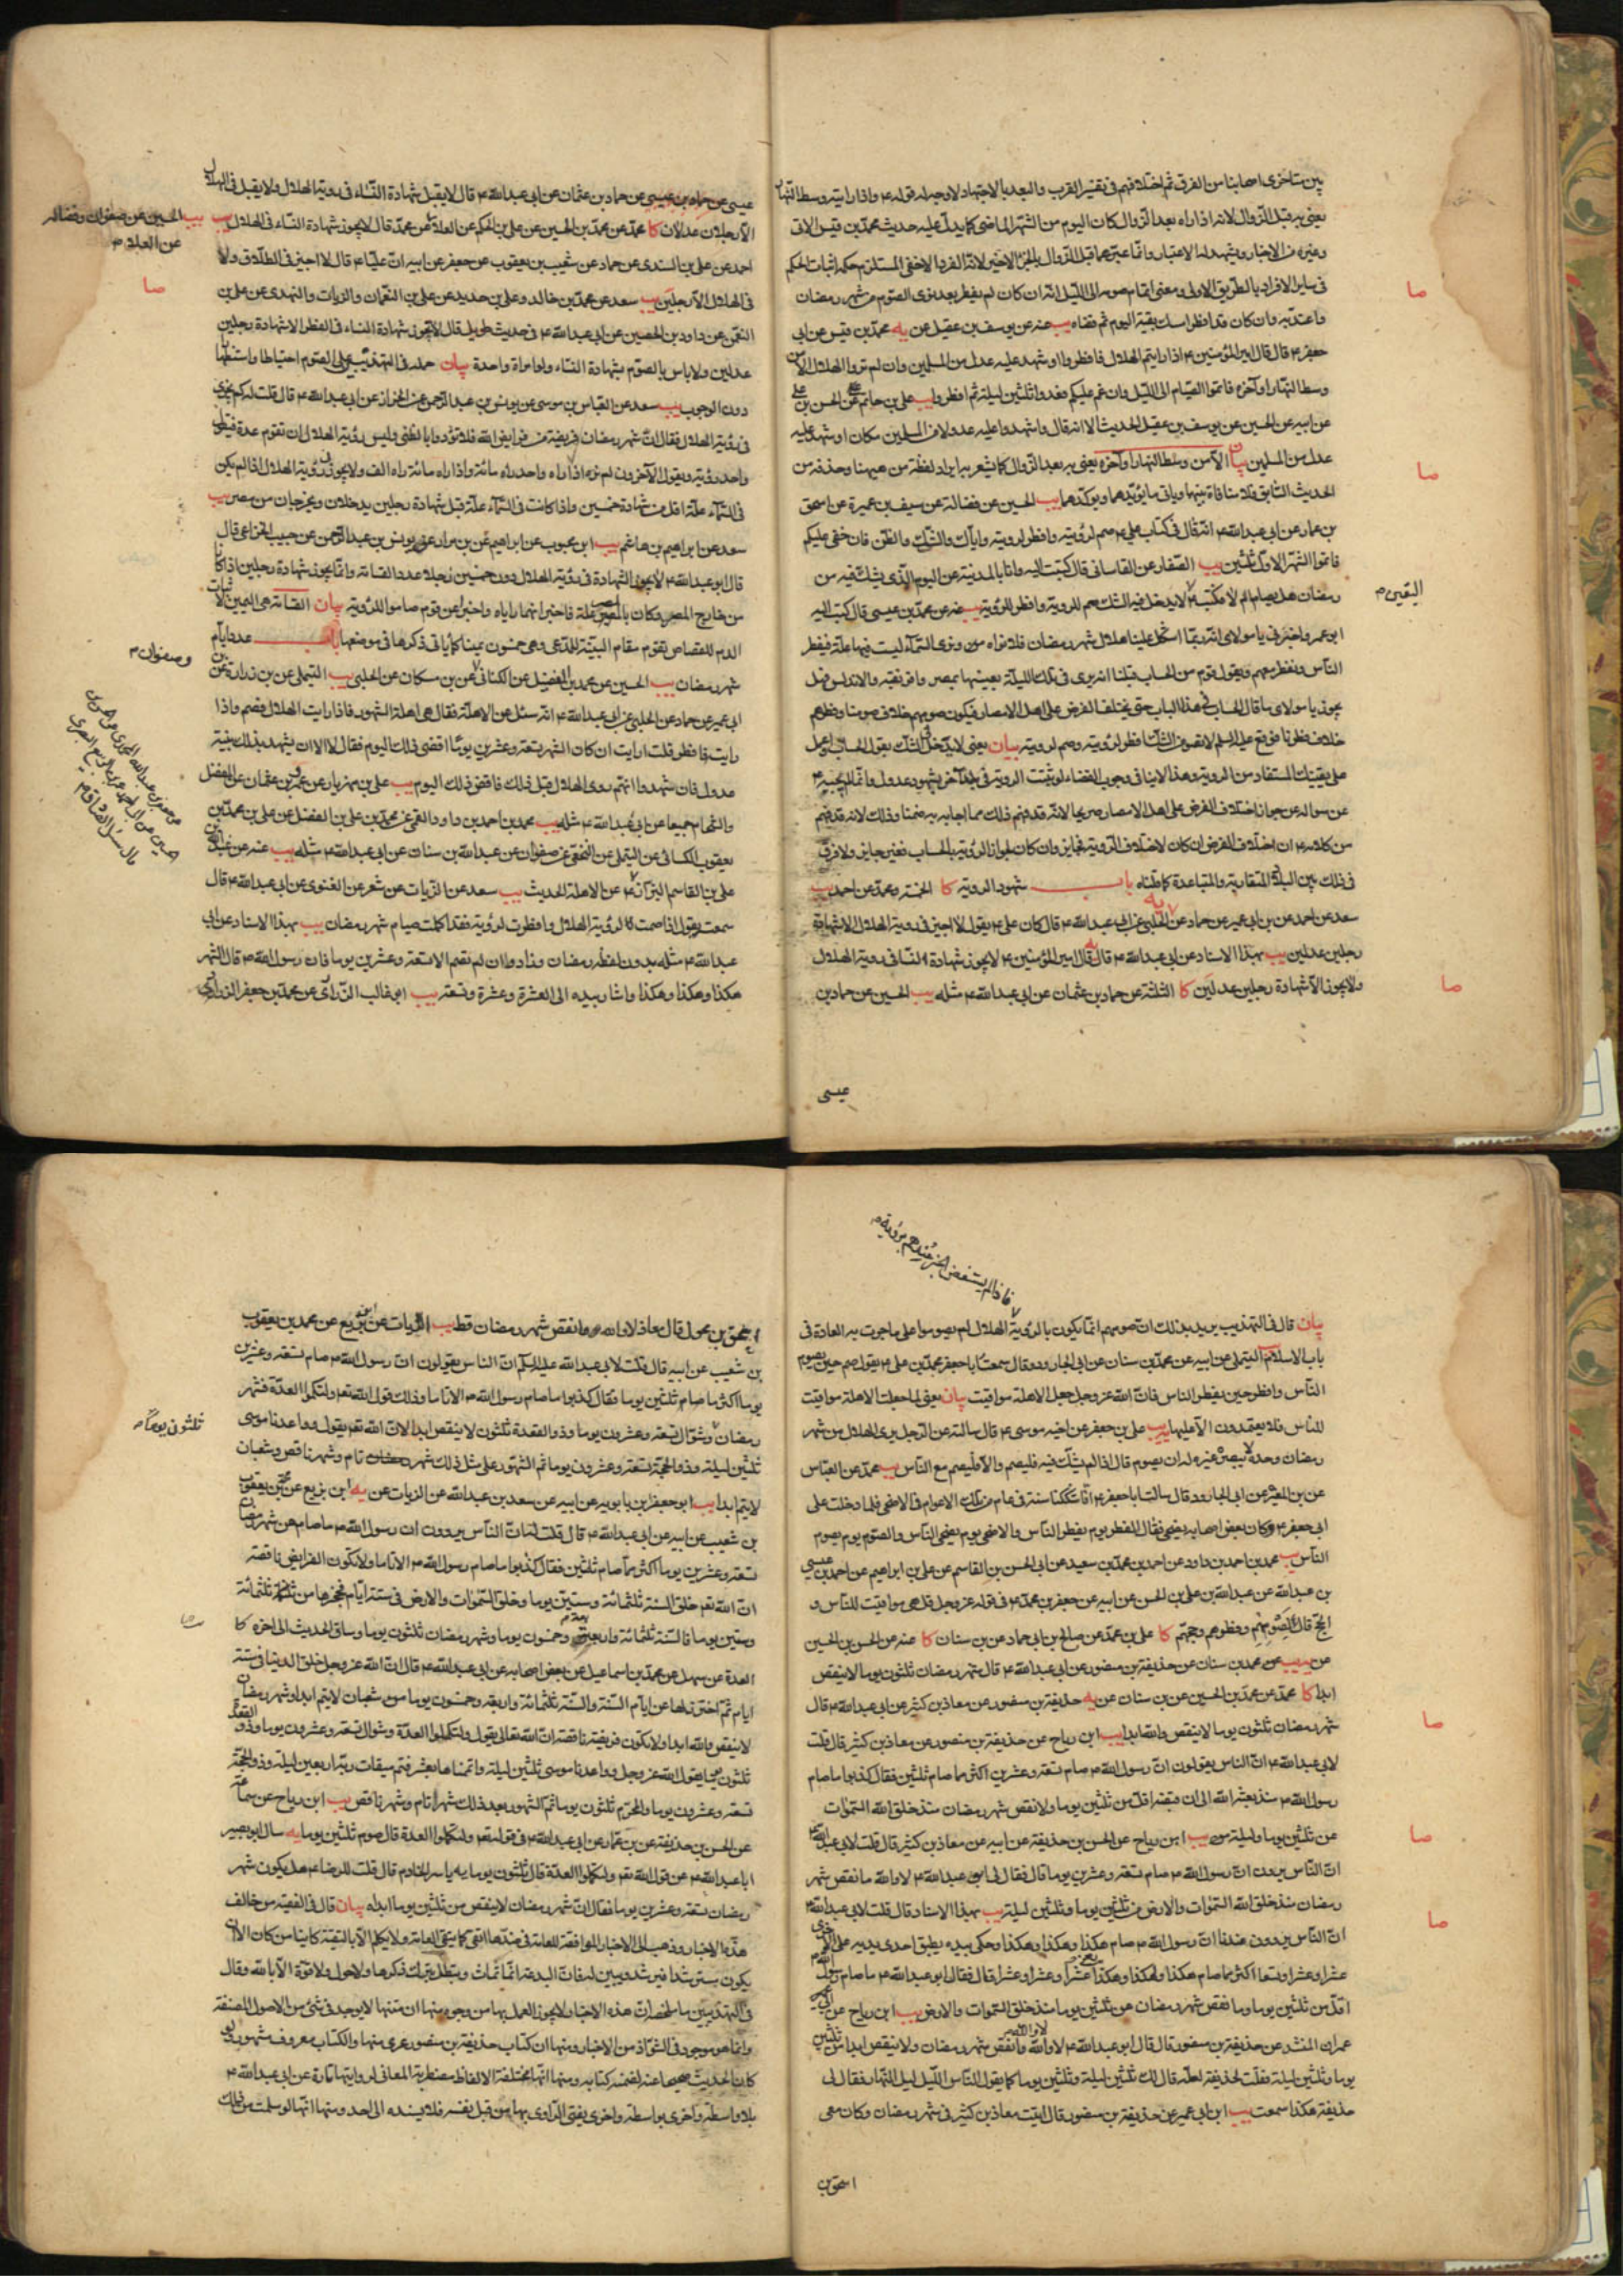 بين متاخرى اصحابنا من الفرق ثم اختلافهم فى تفسير القرب والبعد بالاجتهاد لا وجه له قوله ع واذا رايته وسط النهار
يعنى به قبل الزوال لانه اذا راه بعد الزوال كان اليوم من الشهر الماضى كما يدل عليه حديث محمد بن قيس الاتى
وغيره من الاخبار ويشهد له الاعتبار وانما عبر عما قبل الزوال بالجزء الاخير لانه الفرد الاخفى المستلزم حكمه اثبات الحكم
فى ساير الافراد بالطريق الاولى ومعنى اتمام صومه الى الليل انه ان كان لم يفطر بعد نوى الصوم من شهر رمضان
واعتد به وان كان قد افطر امسك بقية اليوم ثم قضاه يب عنه عن يوسف بن عقيل عن يه محمد بن قيس عن ابى
جعفر ع قال قال امير المؤمنين ع اذا رايتم الهلال فافطروا او شهد عليه عدل من المسلمين وان لم تروا الهلال الا من
وسط النهار او آخره فاتموا الصيام الى الليل وان غم عليكم فعدوا ثلثين ليلة ثم افطروا يب على بن حاتم عن الحسن بن على
عن ابيه عن الحسين عن يوسف بن عقيل الحديث الا انه قال واشهدوا عليه عدولا من المسلمين مكان او شهد عليه
عدل من المسلمين بيان الا من وسط النهار او آخره يعنى به بعد الزوال كما يشعر به ايراد لفظة من هيهنا وحذفه من
الحديث السابق فلا منافاة بينهما وياتى ما يؤيدهما ويوكدهما يب الحسين عن فضالة عن سيف بن عميرة عن اسحق
بن عمار عن ابى عبد الله ع انه قال فى كتاب على ع صم لرؤيته وافطر لرويته واياك والشك والظن فان خفى عليكم
فاتموا الشهر الاول ثلثين يب الصفار عن القاسانى قال كتبت اليه وانا بالمدينة عن اليوم الذى يشك فيه من
رمضان هل يصام ام لا فكتب ع لا يدخل فيه الشك صم للروية وافطر للرؤية يب عنه عن محمد بن عيسى قال كتب اليه
ابو عمر واخبرنى يا مولاى انه ربما اشكل علينا هلال شهر رمضان فلا نراه ونرى السماء ليست فيها علة فيفطر
الناس ونفطر معهم ويقول قوم من الحساب قبلنا انه يرى فى تلك الليلة بعينها بمصر وافريقية والاندلس فهل
يجوز يا مولاى ما قال الحساب فى هذا الباب حتى يختلف الفرض على اهل الامصار فيكون صومهم خلاف صومنا وفطرهم
خلاف فطرنا فوقع عليه السلم لا تصومن الشك افطر لرؤيته وصم لرويته بيان يعنى لا يدخل الشك بقول الحساب واعمل
على يقينك المستفاد من الروية وهذا لا ينافى وجوب القضاء لو ثبتت الروية فى بلد آخر بشهود عدول وانما لم يجبه ع
عن سواله عن جواز اختلاف الفرض على اهل الامصار صريحا لانه قد فهم ذلك مما اجابه به ضمنا وذلك لانه قد فهم
من كلامه ع ان اختلاف الفرض ان كان لاختلاف الروية فجايز وان كان لجواز الرؤية بالحساب فغير جايز ولا فرق
فى ذلك بين البلاد المتقاربة والمتباعدة كما قلناه باب شهود الروية كا الخمسة وعدة عن احمد يب
سعد عن احمد عن بن ابى عمير عن حماد عن يه الحلبى عن ابى عبد الله ع قال كان على ع يقول لا اجيز فى روية الهلال الا شهادة
رجلين عدلين يب بهذا الاسناد عن ابى عبد الله ع قال يه قال امير المؤمنين ع لا يجوز شهادة النساء فى روية الهلال
ولا يجوز الا شهادة رجلين عدلين كا الثلثة عن حماد بن عثمان عن ابى عبد الله ع مثله يب الحسين عن حماد بن
صا
صا
اليقين م
صا
عيسى
عيسى عن حماد بن عثمان عن ابى عبد الله ع قال لا يقبل شهادة النساء فى روية الهلال ولا يقبل فى الهلال
الا رجلان عدلان كا محمد عن محمد بن الحسين عن على بن الحكم عن العلا عن محمد قال لا يجوز شهادة النساء فى الهلال يب
احمد عن على بن السندى عن حماد عن شعيب بن يعقوب عن جعفر عن ابيه ان عليا ع قال لا اجيز فى الطلاق ولا
فى الهلال الا رجلين يب سعد عن محمد بن خالد وعلى بن حديد عن على بن النعمان والزيات والنهدى عن على بن
النعمن عن داود بن الحصين عن ابى عبد الله ع فى حديث طويل قال لا تجوز شهادة النساء فى الفطر الا شهادة رجلين
عدلين ولا باس بالصوم بشهادة النساء ولو امراة واحدة بيان حمله فى التهذيبين على الصوم احتياطا واستظهارا
دون الوجوب يب سعد عن العباس بن موسى عن يونس بن عبد الرحمن عن الخزاز عن ابى عبد الله ع قال قلت له كم يجزى
فى رؤية الهلال فقال ان شهر رمضان فريضة من فرايض الله فلا تؤدوا بالتظنى وليس رؤية الهلال ان تقوم عدة فيقول
واحد رؤيته ويقول الآخرون لم نره اذا راه واحد راه مائة واذا راه مائة راه الف ولا يجوز فى رؤية الهلال اذا لم يكن
فى السماء علة اقل من شهادة خمسين واذا كانت فى السماء علة قبل شهادة رجلين يدخلان ويخرجان من مصر يب
سعد عن ابراهيم بن هاشم يب ابن محبوب عن ابراهيم عن بن مرار عن يونس بن عبد الرحمن عن حبيب الخزاعى قال
قال ابو عبد الله ع لا يجوز الشهادة فى رؤية الهلال دون خمسين رجلا عدد القسامة وانما يجوز شهادة رجلين اذا كانا
من خارج المصر وكان بالمصر علة فاخبرا انهما راياه واخبرا عن قوم صاموا للرؤية بيان القسامة هى اليمين لاثبات
الدم للقصاص يقوم مقام البينة للمدعى وهى خمسون يمينا كما ياتى ذكرها فى موضعها باب عدد ايام
شهر رمضان يب الحسين عن محمد بن الفضيل عن الكنانى عن بن مسكان عن الحلبى يب التيملى عن بن زرارة عن بن
ابى عمير عن حماد عن الحلبى عن ابى عبد الله ع انه سئل عن الاهلة فقال هى اهلة الشهور فاذا رايت الهلال فصم واذا
رايته فافطر قلت ارايت ان كان الشهر تسعة وعشرين يوما اقضى ذلك اليوم فقال لا الا ان يشهد بذلك بينة
عدول فان شهدوا انهم روى الهلال قبل ذلك فاقض ذلك اليوم يب على بن مهزيار عن عمرو بن عثمان عن المفضل
والشحام جميعا عن ابى عبد الله ع مثله يب محمد بن احمد بن داود القمى عن محمد بن على بن الفضل عن على بن محمد بن
يعقوب الكسائى عن التيملى عن النخعى عن صفوان عن عبد الله بن سنان عن ابى عبد الله ع مثله يب عنه عن عبد الله بن
على بن القاسم البزاز عن الاهلة الحديث يب سعد عن الزيات عن شعر عن الغنوى عن ابى عبد الله ع قال
سمعته يقول اذا صمت لرؤية الهلال وافطرت لرؤيته فقد اكملت صيام شهر رمضان يب بهذا الاسناد عن ابى
عبد الله ع مثله بدون لفظة رمضان وزاد وان لم تقم الا تسعة وعشرين يوما فان رسول الله ص قال الشهر
هكذا وهكذا وهكذا واشار بيده الى العشرة وعشرة وتسعة يب ابو غالب الزرارى عن محمد بن جعفر الرزاز عن
يب الحسين عن صفوان وفضالة
عن العلا م
صا
وصفوان م
بيان قال فى التهذيب يريد بذلك ان صومهم انما يكون بالرؤية الهلال لم يصوموا على ما جرت به العادة فى
باب الاسلام التيملى عن ابيه عن محمد بن سنان عن ابى الجارود قال سمعت ابا جعفر محمد بن على ع يقول صم حين يصوم
الناس وافطر حين يفطر الناس فان الله عز وجل جعل الاهلة مواقيت بيان يعنى لما جعلت الاهلة مواقيت
للناس فلا يعتمدون الا عليها يب على بن جعفر عن اخيه موسى ع قال سالته عن الرجل يرى الهلال من شهر
رمضان وحده لا يبصره غيره له ان يصوم قال اذا لم يشك فيه فليصم والا فليصم مع الناس يب محمد عن العباس
عن بن المغيرة عن ابى الجارود قال سالت ابا جعفر ع انا شككنا سنة فى عام من تلك الاعوام فى الاضحى فلما دخلت على
ابى جعفر ع وكان بعض اصحابه يضحى فقال الفطر يوم يفطر الناس والاضحى يوم يضحى الناس والصوم يوم يصوم
الناس يب محمد بن احمد بن داود عن احمد بن محمد بن سعيد عن ابى الحسن بن القاسم عن على بن ابراهيم عن احمد بن عيسى
بن عبد الله عن عبد الله بن على بن الحسن عن ابيه عن جعفر بن محمد ع فى قوله عز وجل قل هى مواقيت للناس و
الحج قال لصومهم وفطرهم وحجهم كا على بن محمد عن صالح بن ابى حماد عن بن سنان كا عنه عن الحسن بن الحسين
عن يب محمد بن سنان عن حذيفة بن منصور عن ابى عبد الله ع قال شهر رمضان ثلثون يوما لا ينقص
ابدا كا محمد عن محمد بن الحسين عن بن سنان عن يه حذيفة بن منصور عن معاذ بن كثير عن ابى عبد الله ع قال
شهر رمضان ثلثون يوما لا ينقص والله ابدا يب ابن رياح عن حذيفة بن منصور عن معاذ بن كثير قال قلت
لابى عبد الله ع ان الناس يقولون ان رسول الله ص صام تسعة وعشرين اكثر مما صام ثلثين فقال كذبوا ما صام
رسول الله ص منذ بعثه الله الى ان قبضه اقل من ثلثين يوما ولا نقص شهر رمضان منذ خلق الله السموات
عن ثلثين يوما وليلة يب ابن رياح عن الحسن بن حذيفة عن ابيه عن معاذ بن كثير قال قلت لابى عبد الله ع
ان الناس يروون ان رسول الله ص صام تسعة وعشرين يوما قال فقال لى ابو عبد الله ع لا والله ما نقص شهر
رمضان منذ خلق الله السموات والارض من ثلثين يوما وثلثين ليلة يب بهذا الاسناد قال قلت لابى عبد الله ع
ان الناس يروون عندنا ان رسول الله ص صام هكذا وهكذا وهكذا وحكى بيده يطبق احدى يديه على الاخرى
عشرا وعشرا وتسعا اكثر مما صام هكذا وهكذا وهكذا عشرا وعشرا وعشرا قال فقال ابو عبد الله ع ما صام رسول الله
اقل من ثلثين يوما وما نقص شهر رمضان من ثلثين يوما منذ خلق السموات والارض يب ابن رياح عن
عمران المنشد عن حذيفة بن منصور قال قال ابو عبد الله ع لا والله لا والله ما نقص شهر رمضان ولا ينقص ابدا من ثلثين
يوما وثلثين ليلة فقلت لحذيفة لعله قال لك ثلثين ليلة وثلثين يوما كما يقول الناس الليل ليل النهار فقال لى
حذيفة هكذا سمعت يب ابن ابى عمير عن حذيفة بن منصور قال اتيت معاذ بن كثير فى شهر رمضان وكان معى
صا
صا
صا
اسحق بن
اسحق بن محول قال معاذ لا والله ما نقص شهر رمضان قط يب الزيات عن ابن بزيع عن محمد بن يعقوب
بن شعيب عن ابيه قال قلت لابى عبد الله عليه السلم ان الناس يقولون ان رسول الله ص صام تسعة وعشرين
يوما اكثر مما صام ثلثين يوما فقال كذبوا ما صام رسول الله ص الا تاما وذلك قول الله تعه ولتكملوا العدة فشهر
رمضان وشوال تسعة وعشرون يوما وذو القعدة ثلثون لا ينقص ابدا لان الله تعه يقول وواعدنا موسى
ثلثين ليلة وذو الحجة تسعة وعشرون يوما ثم الشهور على مثل ذلك شهر تام وشهر ناقص وشعبان
لا يتم ابدا يب ابو جعفر بن بابويه عن ابيه عن سعد بن عبد الله عن الزيات عن يه ابن بزيع عن محمد بن يعقوب
بن شعيب عن ابيه عن ابى عبد الله ع قال قلت له ان الناس يروون ان رسول الله ص ما صام من شهر رمضان
تسعة وعشرين يوما اكثر مما صام ثلثين فقال كذبوا ما صام رسول الله ص الا تاما ولا تكون الفرايض ناقصة
ان الله تعه خلق السنة ثلثمائة وستين يوما وخلق السموات والارض فى ستة ايام فحجزها من ثلثمائة
وستين يوما فالسنة ثلثمائة واربعة وخمسون يوما وشهر رمضان ثلثون يوما وساق الحديث الى اخره كا
العدة عن سهل عن محمد بن اسماعيل عن بعض اصحابه عن ابى عبد الله ع قال ان الله عز وجل خلق الدنيا فى ستة
ايام ثم اختزلها عن ايام السنة والسنة ثلثمائة واربعة وخمسون يوما شعبان لا يتم ابدا وشهر رمضان
لا ينقص والله ابدا ولا تكون فريضة ناقصة ان الله تعالى يقول ولتكملوا العدة وشوال تسعة وعشرون يوما وذو القعدة
ثلثون يوما يقول الله عز وجل وواعدنا موسى ثلثين ليلة واتممناها بعشر فتم ميقات ربه اربعين ليلة وذو الحجة
تسعة وعشرون يوما والمحرم ثلثون يوما ثم الشهور بعد ذلك شهر تام وشهر ناقص يب ابن رياح عن سماعة
عن الحسن بن حذيفة عن بن عمار عن ابى عبد الله ع فى قوله تعه ولتكملوا العدة قال صوم ثلثين يوما يه سال ابو بصير
ابا عبد الله ع عن قول الله تعه ولتكملوا العدة قال ثلثون يوما يه ياسر الخادم قال قلت للرضا ع هل يكون شهر
رمضان تسعة وعشرين يوما فقال ان شهر رمضان لا ينقص من ثلثين يوما ابدا بيان قال فى الفقيه من خالف
هذه الاخبار وذهب الى الاخبار الموافقة للعامة فى ضدها اتقى كما يتقى العامة ولا يكلم الا بالتقية كاينا من كان الا ان
يكون مسترشدا فيرشد ويبين له فان البدعة انما تماث وتبطل بترك ذكرها ولا حول ولا قوة الا بالله وقال
فى التهذيبين ما ملخصه ان هذه الاخبار لا يجوز العمل بها من وجوه منها ان متنها لا يوجد فى شئ من الاصول المصنفة
وانما هو موجود فى الشواذ من الاخبار ومنها ان كتاب حذيفة بن منصور عرى منها والكتاب معروف مشهور ولو
كان الحديث صحيحا عنه لضمنه كتابه ومنها انها مختلفة الالفاظ مضطربة المعانى لروايتها تارة عن ابى عبد الله ع
بلا واسطة واخرى بواسطة واخرى يفتى الراوى بها من قبل نفسه فلا يسنده الى احد ومنها انها لو سلمت من ذلك
ثلثون يوما م